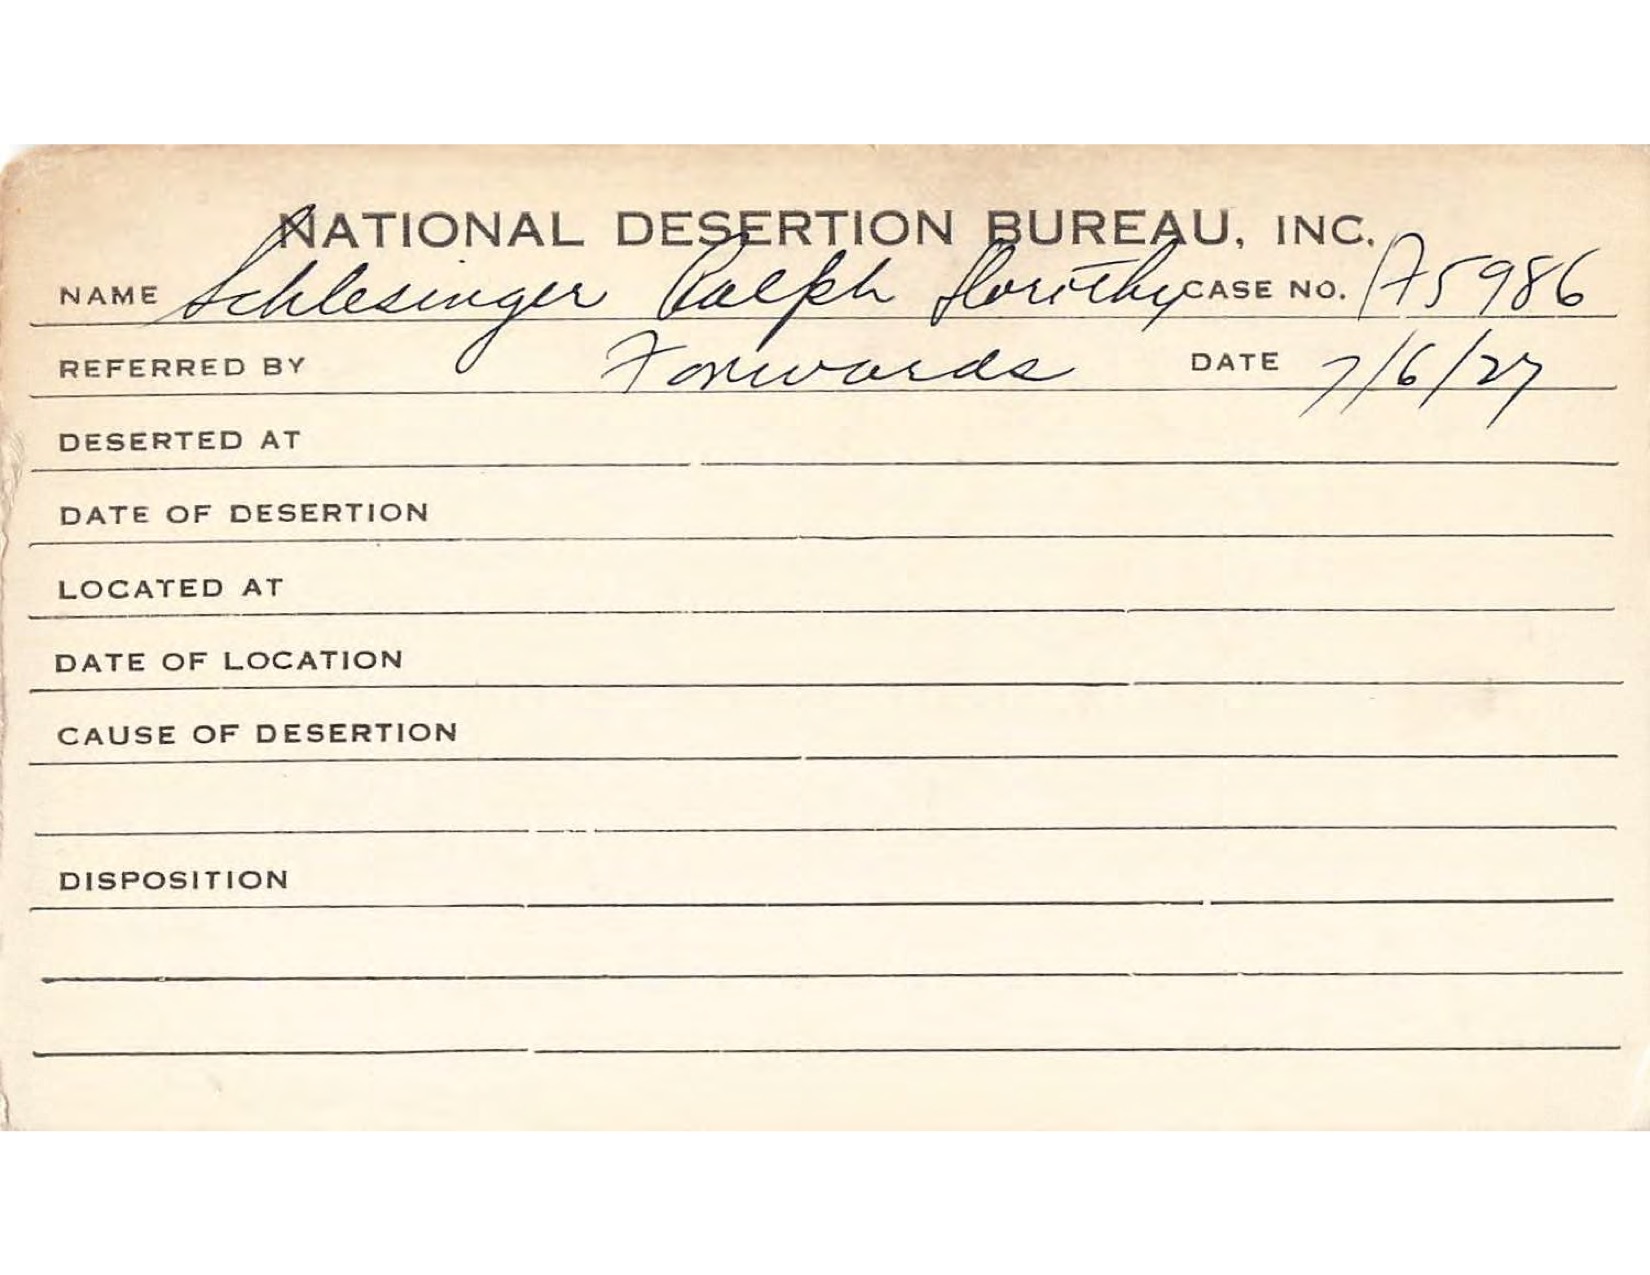 NATIONAL DESERTION BUREAU, INC.
NAME Schlesinger Ralph Dorithy CASE NO. A5986
REFERRED BY Forwards DATE 7/6/27
DESERTED AT
DATE OF DESERTION
LOCATED AT
DATE OF LOCATION
CAUSE OF DESERTION
DISPOSITION